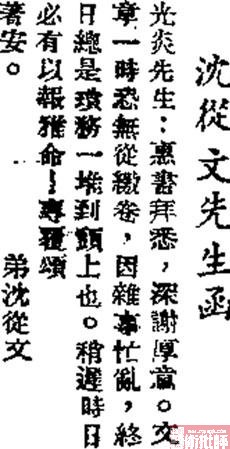 沈從文先生函
光炎先生：惠書拜悉，深謝厚意。文
章一時恐無從繳卷，因雜事忙亂，終
日總是瑣務一堆到頭上也。稍遲時日
必有以報雅命！專覆頌
著安。
弟沈從文